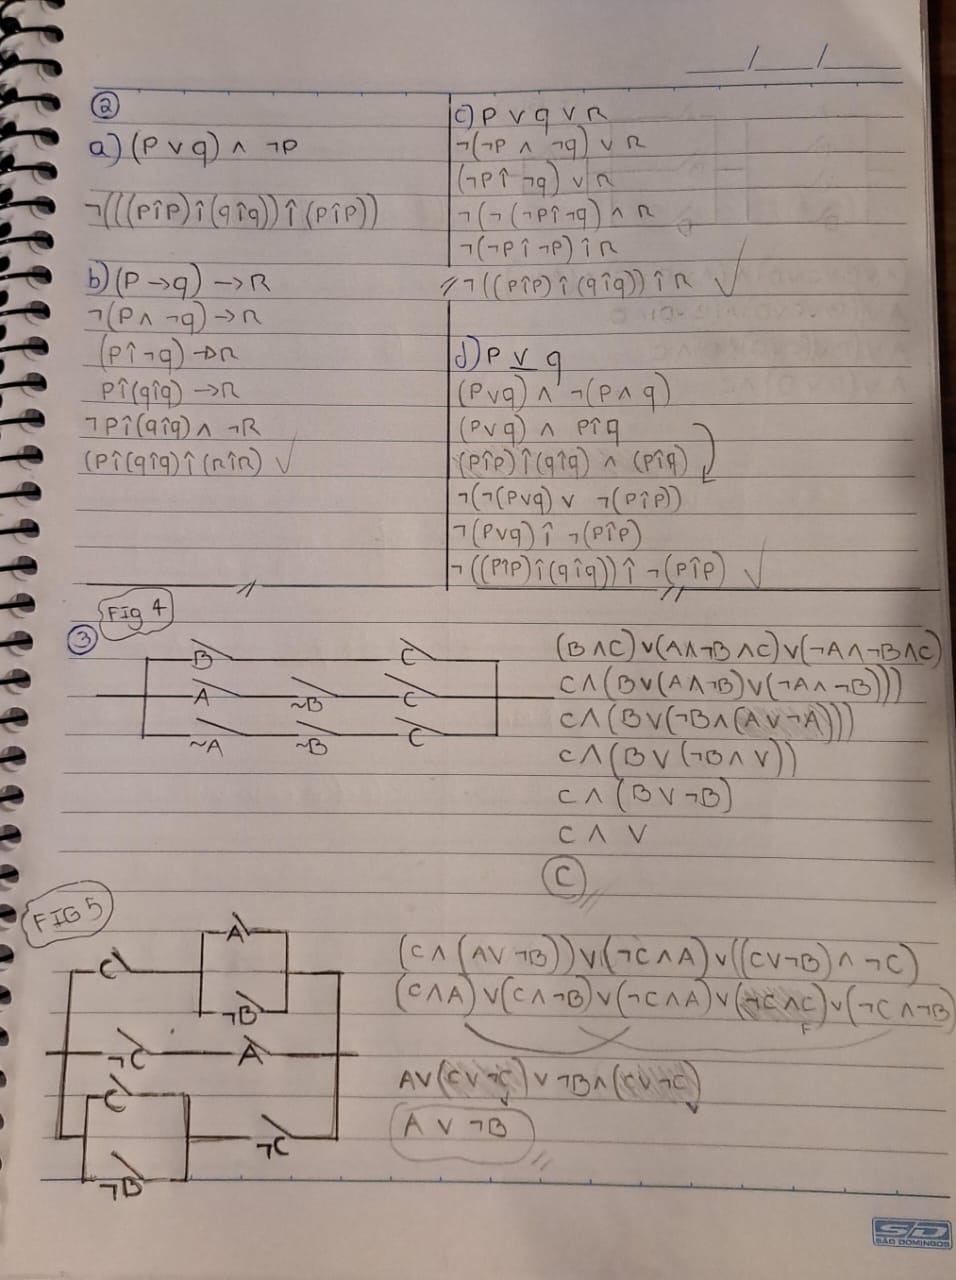 __/__/__
②
a) (P ∨ q) ∧ ¬P
¬(((P↑P)↑(q↑q))↑(P↑P))
b) (P → q) → R
¬(P ∧ ¬q) → R
(P↑¬q) → R
P↑(q↑q) → R
¬P↑(q↑q) ∧ ¬R
(P↑(q↑q)↑(R↑R) ✓
c) P ∨ q ∨ R
¬(¬P ∧ ¬q) ∨ R
(¬P↑¬q) ∨ R
¬(¬(¬P↑¬q) ∧ R
¬(¬P↑¬P)↑R
¬((P↑P)↑(q↑q))↑R ✓
d) P ⊻ q
(P∨q) ∧ ¬(P∧q)
(P∨q) ∧ P↑q
(P↑P)↑(q↑q) ∧ (P↑q)
¬(¬(P∨q) ∨ ¬(P↑P))
¬(P∨q)↑¬(P↑P)
¬((P↑P)↑(q↑q))↑¬(P↑P) ✓
Fig 4
③
B C
A ~B C
~A ~B C
(B∧C)∨(A∧¬B∧C)∨(¬A∧¬B∧C)
C∧(B∨(A∧¬B)∨(¬A∧¬B)))
C∧(B∨(¬B∧(A∨¬A)))
C∧(B∨(¬B∧V))
C∧(B∨¬B)
C∧V
C
FIG 5
A
C
¬B
¬C A
C
¬C
¬B
(C∧(A∨¬B))∨(¬C∧A)∨((C∨¬B)∧¬C)
(C∧A)∨(C∧¬B)∨(¬C∧A)∨(¬C∧C)∨(¬C∧¬B)
F
A∨(C∨¬C)∨¬B∧(C∨¬C)
V V
A∨¬B
SD
SÃO DOMINGOS